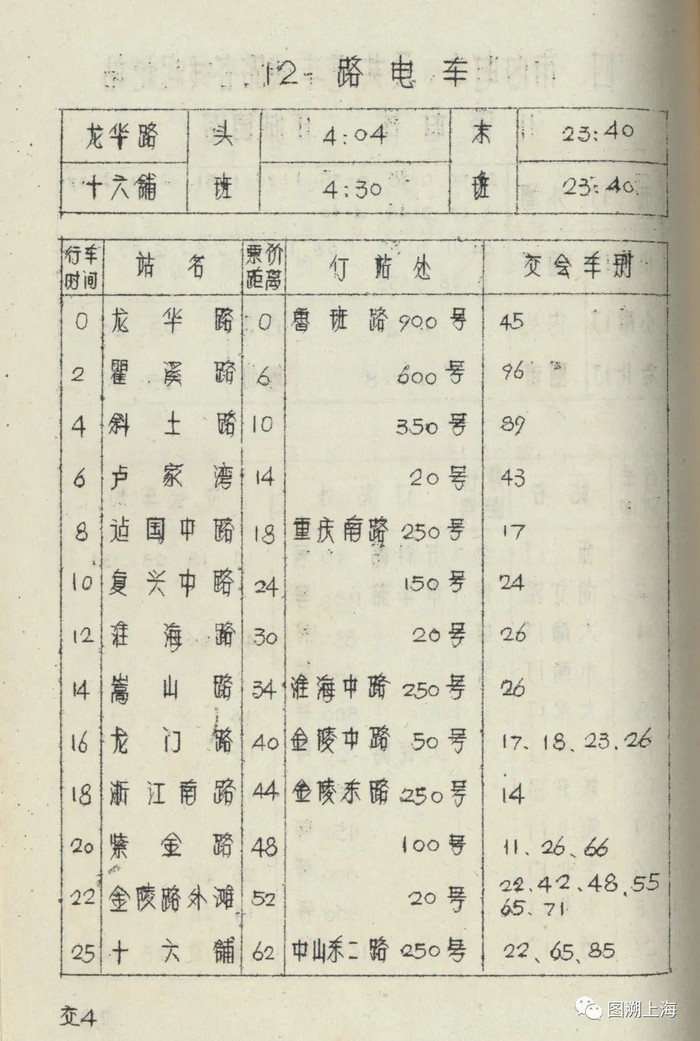 12 路电车
龙华路 头 4:04 末 23:40
十六舖 班 4:30 班 23:40
行车时间 站名 票价距离 仃站处 交会车别
0 龙华路 0 鲁班路 900号 45
2 瞿溪路 6 600号 96
4 斜土路 10 350号 89
6 卢家湾 14 20号 43
8 建国中路 18 重庆南路 250号 17
10 复兴中路 24 150号 24
12 淮海路 30 20号 26
14 嵩山路 34 淮海中路 250号 26
16 龙门路 40 金陵中路 50号 17、18、23、26
18 浙江南路 44 金陵东路 250号 14
20 紫金路 48 100号 11、26、66
22 金陵路外滩 52 20号 22、42、48、55
65、71
25 十六舖 62 中山东二路 250号 22、65、85
交4
图溯上海